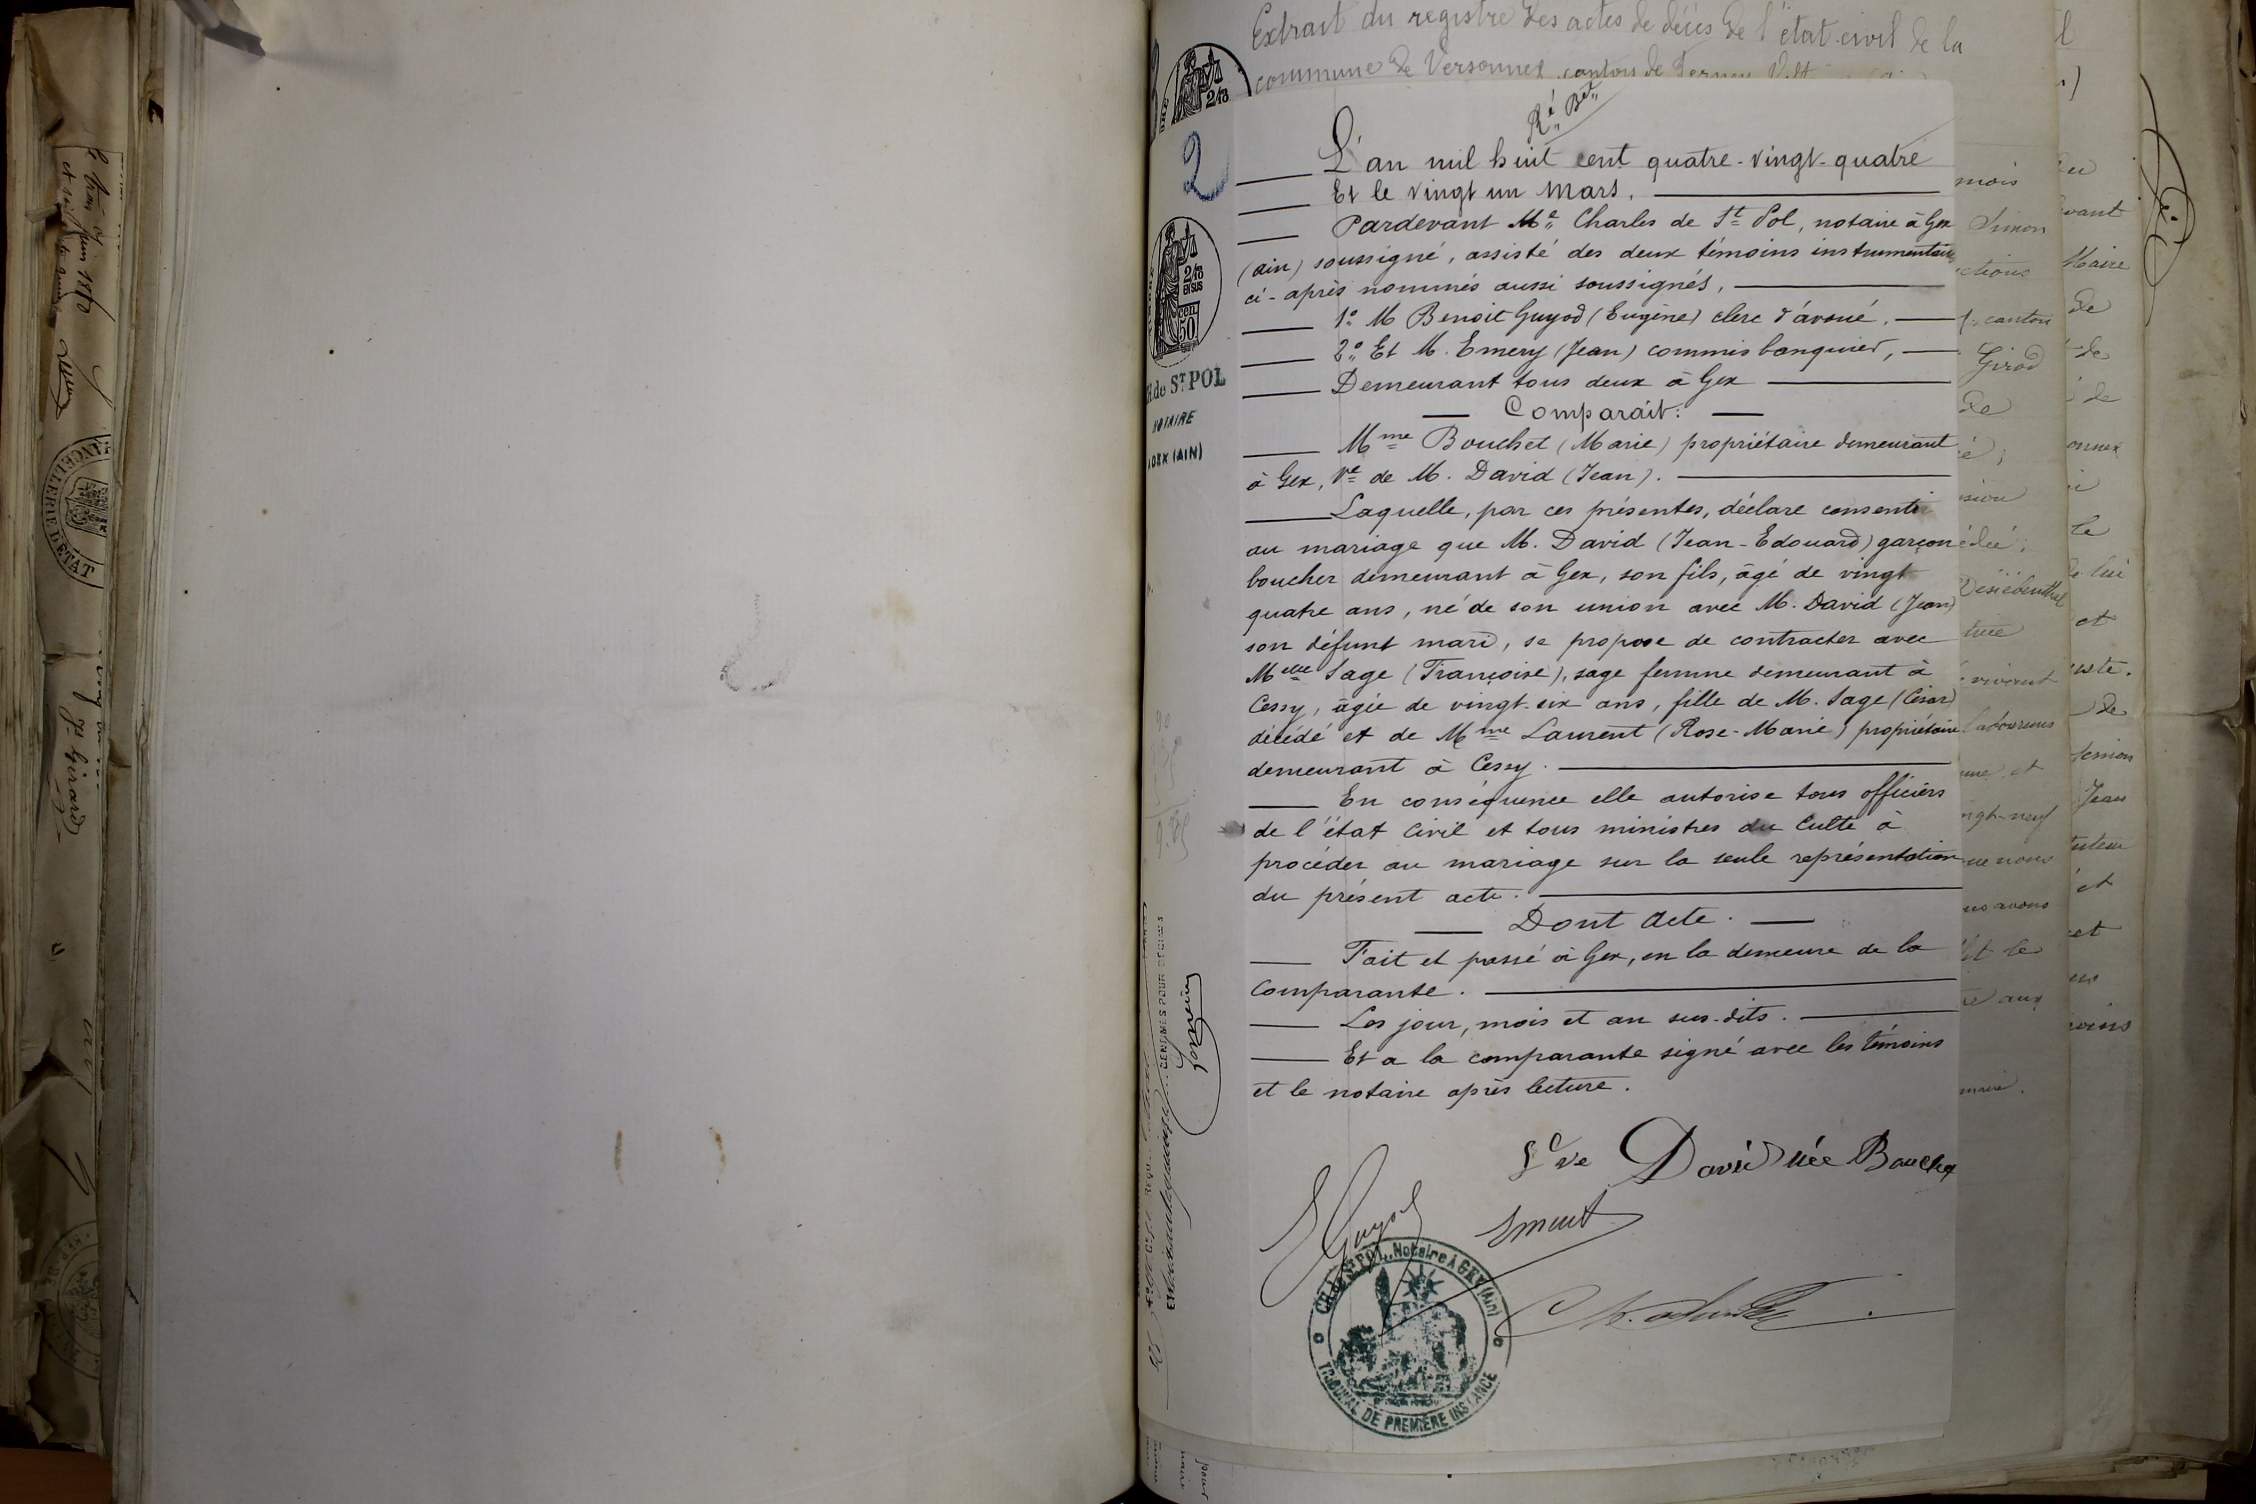 Extrait du registre des actes de décès de l'état-civil de la
commune de Versonnex canton de Ferney
Ré Bet
2
L'an mil huit cent quatre-vingt-quatre
Et le vingt un Mars.
Pardevant Me Charles de St Pol, notaire à Gex
(ain) soussigné, assisté des deux témoins instrumentaires
ci-après nommés aussi soussignés,
1o M Benoit Guyod (Eugène) clerc d'avoué.
2o Et M. Emery (Jean) commis banquier,
Demeurant tous deux à Gex
Comparait:
Mme Bouchet (Marie) propriétaire demeurant
à Gex, Ve de M. David (Jean).
Laquelle, par ces présentes, déclare consentir
au mariage que M. David (Jean-Edouard) garçon
boucher demeurant à Gex, son fils, âgé de vingt
quatre ans, né de son union avec M. David (Jean)
son défunt mari, se propose de contracter avec
Melle Sage (Françoise), sage femme demeurant à
Cessy, âgée de vingt-six ans, fille de M. Sage (César)
décédé et de Mme Laurent (Rose-Marie) propriétaire
demeurant à Cessy.
En conséquence elle autorise tous officiers
de l'état civil et tous ministres du Culte à
procéder au mariage sur la seule représentation
du présent acte.
Dont Acte.
Fait et passé à Gex, en la demeure de la
Comparante.
Les jour, mois et an sus-dits.
Et a la comparante signé avec les témoins
et le notaire après lecture.
ve David née Bouchet
E Guyod
CH. de St POL, Notaire à GEX (Ain)
TRIBUNAL DE PREMIÈRE INSTANCE
2/10
EN SUS
50
CH de ST POL
NOTAIRE
A GEX (AIN)
CHANCELLERIE D'ÉTAT
Jn Girard
mois
Simon
canton
Girod
de
Maire
de
de
de
et
de
Jean
et